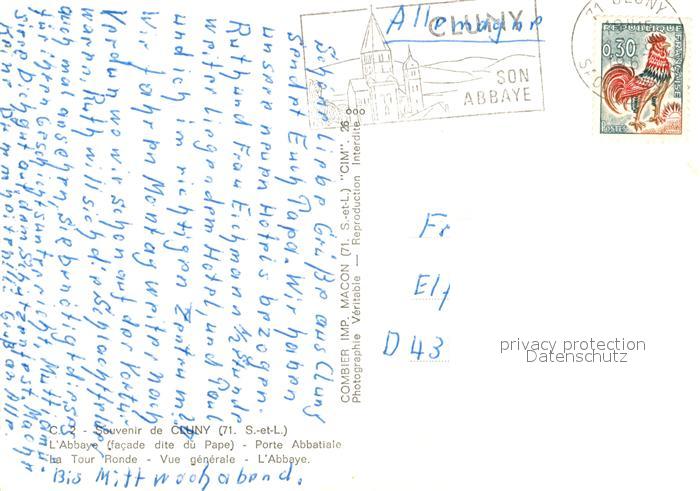 Allemagne
CLUNY
SON
ABBAYE
71 CLUNY
REPUBLIQUE
FRANÇAISE
0,30
POSTES
Schöne liebe Grüße aus Cluny
sendet Euch Papa. Wir haben
unsere neuen Hotels bezogen.
Ruth und Frau Eichmann 1/2 Stunde
weiter liegendem Hotel, und Paul
und ich im richtigen Zentrum.
Wir fahren Montag weiter nach
Verdun wo wir schon auf der
waren. Ruth will sich die Schlachtfelder
auch mal ansehen, sie benötigt dieses
für ihren Geschichtsunterricht. Mutti
COMBIER IMP. MACON (71. S.-et-L.) "CIM". 26
Photographie Véritable — Reproduction Interdite
Fr
D 43
privacy protection
Datenschutz
C. 2 - Souvenir de CLUNY (71. S.-et-L.)
L'Abbaye (façade dite du Pape) - Porte Abbatiale
La Tour Ronde - Vue générale - L'Abbaye.
Bis Mittwochabend.